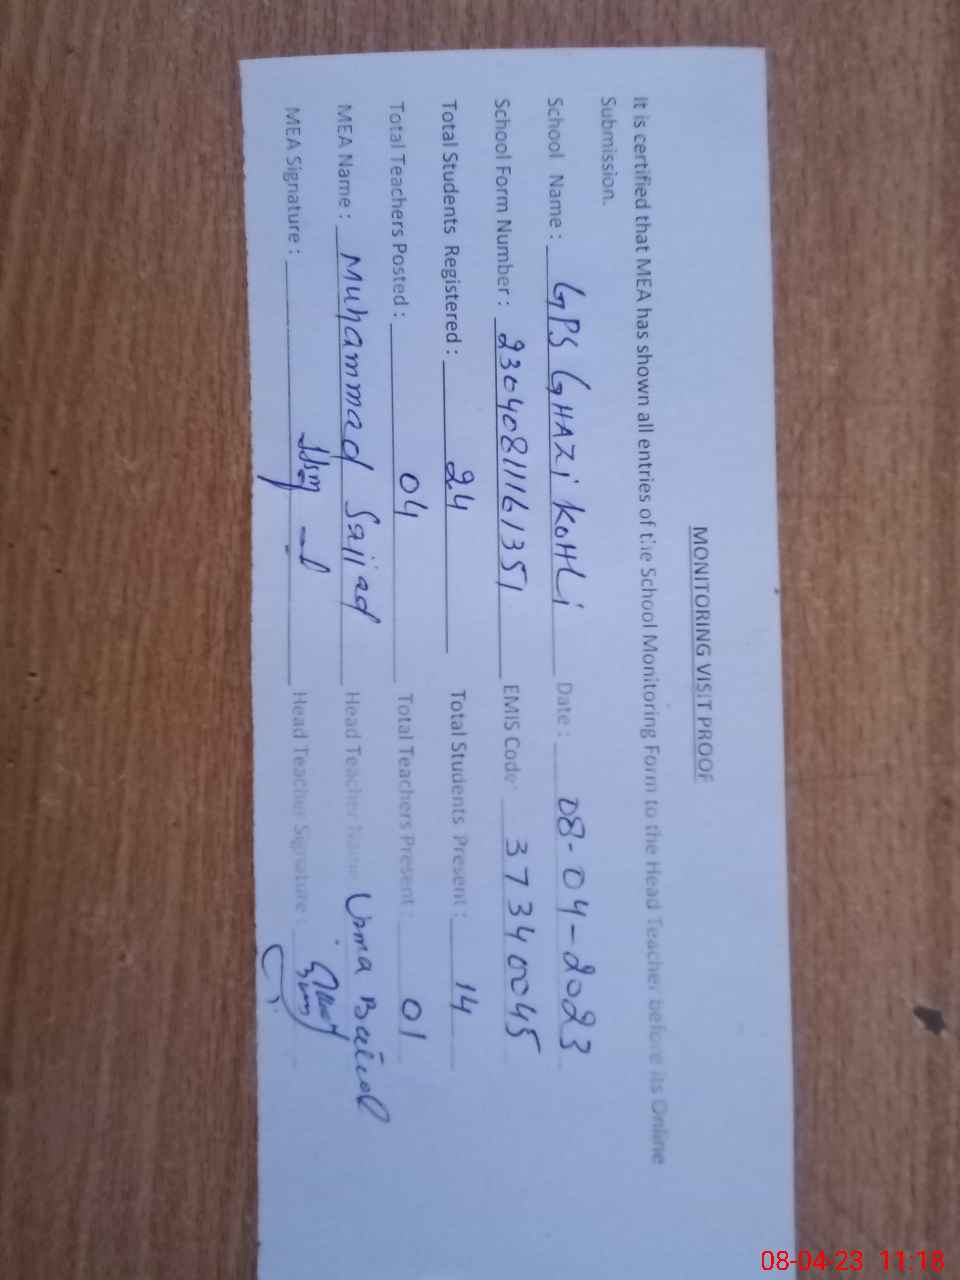 MONITORING VISIT PROOF
It is certified that MEA has shown all entries of the School Monitoring Form to the Head Teacher before its Online
Submission.
School Name : GPS GHAZi KOHLi Date : 08-04-2023
School Form Number : 23040811161351 EMIS Code: 37340045
Total Students Registered : 24 Total Students Present : 14
Total Teachers Posted : 04 Total Teachers Present : 01
MEA Name : Muhammad Sajjad Head Teacher Name
MEA Signature : Head Teacher Signature :
08-04-23 11:18